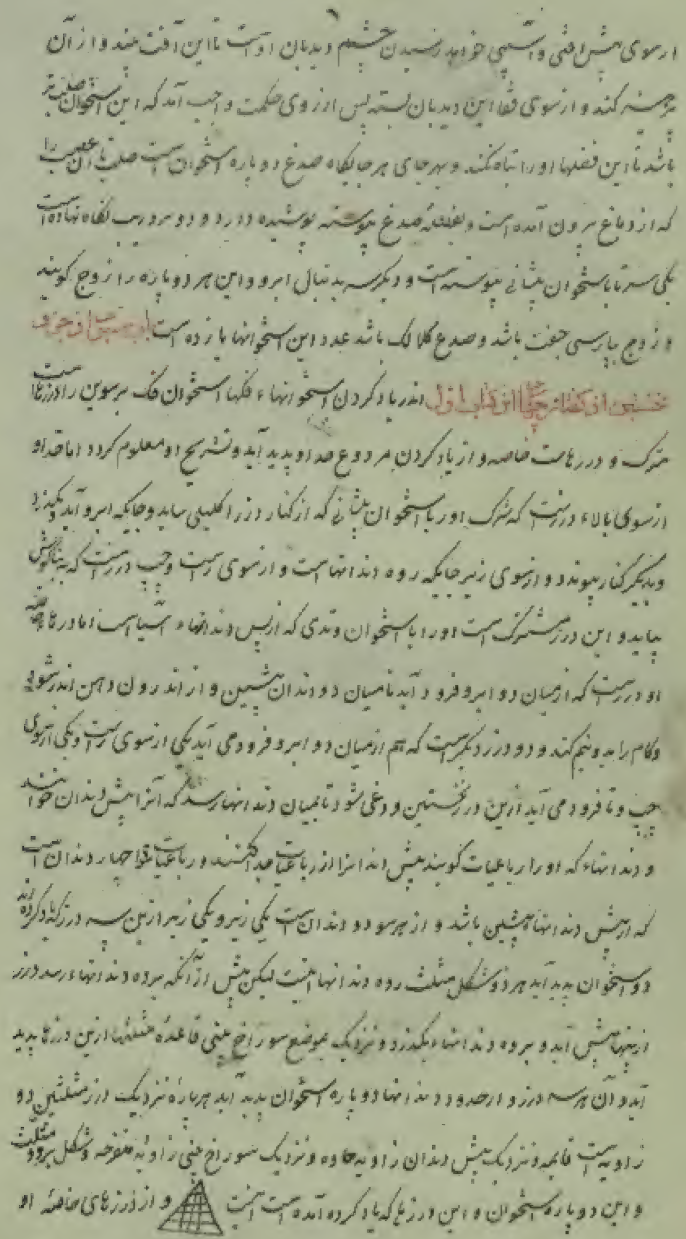 از سوی پیش آفتی و آسیبی خواهد رسیدن چشم دیدبان اوست تا این آفت بیند و از آن
پرهیز کند و از سوی قفا این دیدبان نیست پس از روی حکمت واجب آمد که این استخوان صلب‌تر
باشد تا این فعلها او را تباه نکند و بهر جای هر جایگاه صدغ دو پاره استخوان است صلب تا آن عصب را
که از دماغ بیرون آمده است و بعضلهٔ صدغ پیوسته پوشیده دارد و دو بر دریب نگاه نهاده است
یکی سر تا باستخوان پیشانی پیوسته است و دیگر سر بدنبال ابرو و این هر دو پاره را زوج گویند
و زوج بپارسی جفت باشد و صدغ کلالک باشد عدد این استخوانها یازده است باب از جزو
نخستین از گفتار چهارم از کتاب اول اندر یاد کردن استخوانهاء فکها استخوان فک برسوین را درزهاست
مشترک و درزهاست خاصه و از یاد کردن هر دو نوع حد او پدید آید و تشریح او معلوم گردد اما حد او
از سوی بالاء درزیست که مشترک او را با استخوان پیشانی که از کنار درز اکلیلی بیاید و جایگه ابرو آید و بگذرد
و بدیگر کنار پیوندد و از سوی زیر جایگه رده دندانهاست و از سوی راست و چپ درزیست که به بناگوش
بیاید و این درز مشترک است او را با استخوان وتدی که از پس دندانهاء آسیا است اما درزهاء خاصه
او درزیست که از میان دو ابرو فرود آید تا میان دو دندان پیشین و از اندرون دهن اندر شود
و کام را بدو نیم کند و دو درز دیگر است که هم از میان دو ابرو فرود می آید یکی از سوی راست و یکی از سوی
چپ و تا فرود می آید ازین درز نخستین دور می شود تا بمیان دندانها رسد که آنرا پیش دندان خوانند
و دندانهاء که او را رباعیات گویند پیش دندانرا از رباعیات جدا کنند و رباعیات چهار دندان است
که از پیش دندانهاء پیشین باشد و از هر سو دو دندان است یکی زیر و یکی زبر ازین سه درز که یاد کرده اند
دو استخوان پدید آید هر دو شکل مثلث رده دندانها نیست لیکن پیش از آنکه برده دندانهاء رسد درز
از پهنا پیش آید و برده دندانهاء بگذرد و نزدیک بموضع سوراخ بینی قاعدهٔ مثلثها ازین درزها پدید
آید و آن هر سه درز و از حدود دندانها دو پاره استخوان پدید آید هر پاره نزدیک درز مثلثین دو
زاویه است قایمه و نزدیک پیش دندان زاویه حاده و نزدیک سوراخ بینی زاویه منفرجه و شکل برود مثلث
و این دو پاره استخوان و این درزها که یاد کرده آمده است اینست و از درزهای خاصهٔ او